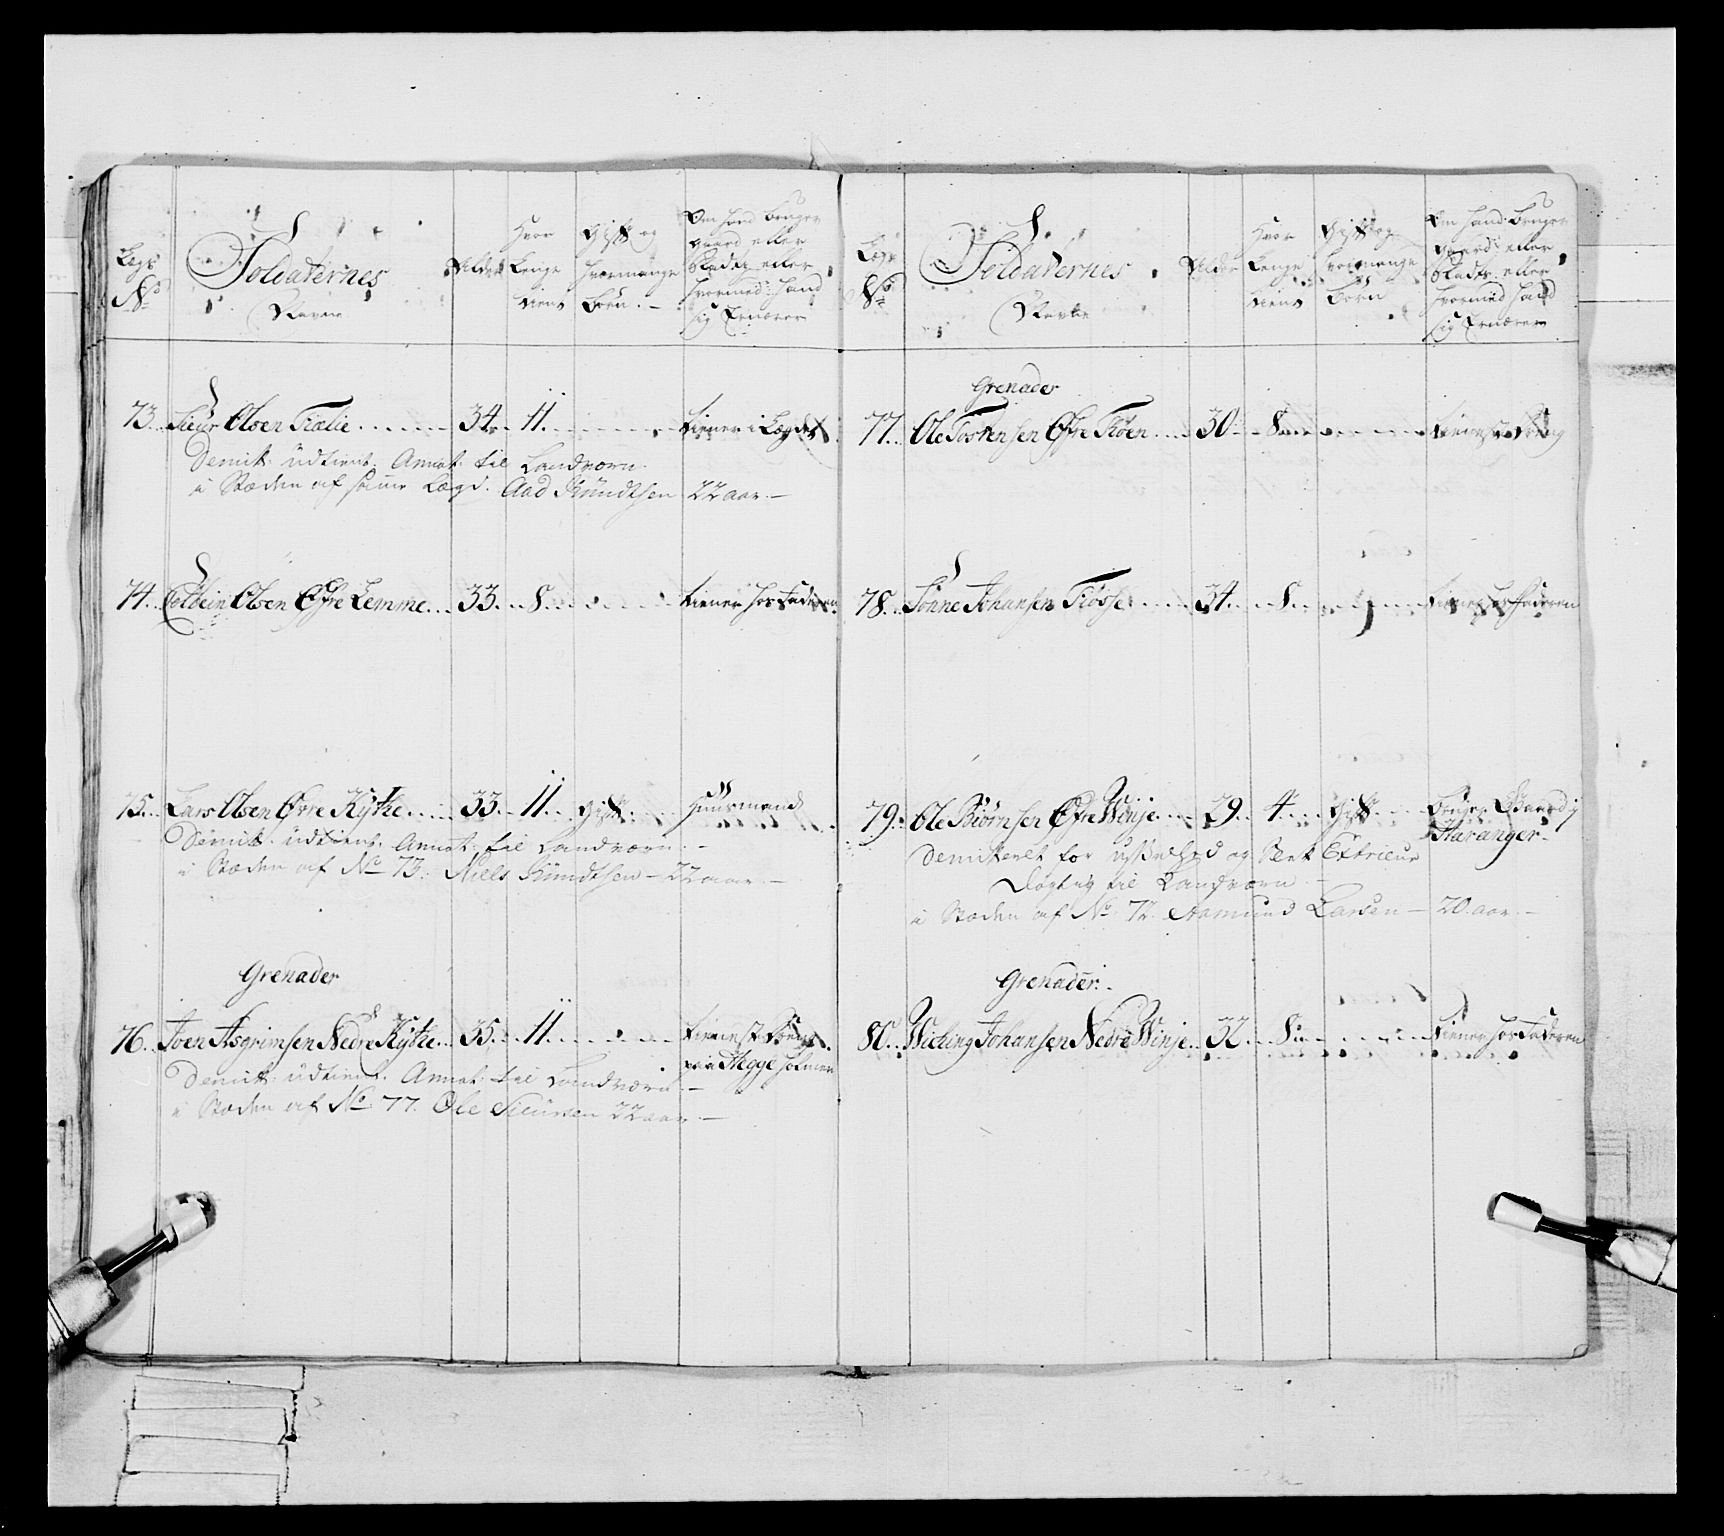 Lægs No
Soldaternes Navne
Alder
Hvor Lenge tient
Gift og hvormange Børn
Om hand bruger gaard eller Pladtz eller hvormed hand sig Ernærer
73. Siur Olsen Trælie 34. 11. tiener i Lægdet
Demit. udtient. Annot. til Landværn.
i Stæden af samme Lægd. Aad Knudtsen 22 aar.
74. Colbein Olsen Øfre Lemme 33. 8. tiener hos Faderen
75. Lars Olsen Øvre Kytke 33. 11. Gift. Huusmand
Demit. udtient. Annot. til Landværn.
i Stæden af No 73. Niels Knudtsen 22 aar.
Grenader
76. Joen Asgrimsen Nedre Kytke 35. 11. tienest
paa Hegge holmen
Demit. udtient. Annot. til Landværn.
i Stæden af No 77. Ole Siursen 22 aar.
Lægs No
Soldaternes Navne
Alder
Hvor Lenge tient
Gift og hvormange Børn
Om hand bruger gaard eller Pladtz eller hvormed hand sig Ernærer
Grenader
77. Ole Tostensen Øfre Tiøen 30. 8.
78. Sønne Johansen 34. 8. tiener hos Faderen
79. Ole Biørnsen Øfre Winje 29. 4. Gift. bruger Gaard i
Haranger
Demiteret for og slet Extrieur
Døgtig til Landværn
i Stæden af No 72. Aamund Larsen 20 aar.
Grenader
80. Wiching Johansen Nedre Winje 32. 8. Tiener hos Faderen